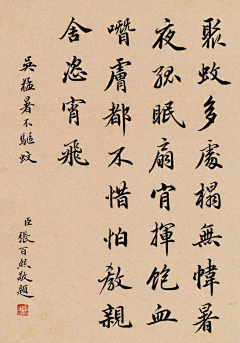 聚蚊多處榻無幃暑
夜孤眠扇肯揮飽血
噆膚都不惜怕教親
舍恣宵飛
吳猛暑不驅蚊
臣張百熙敬題